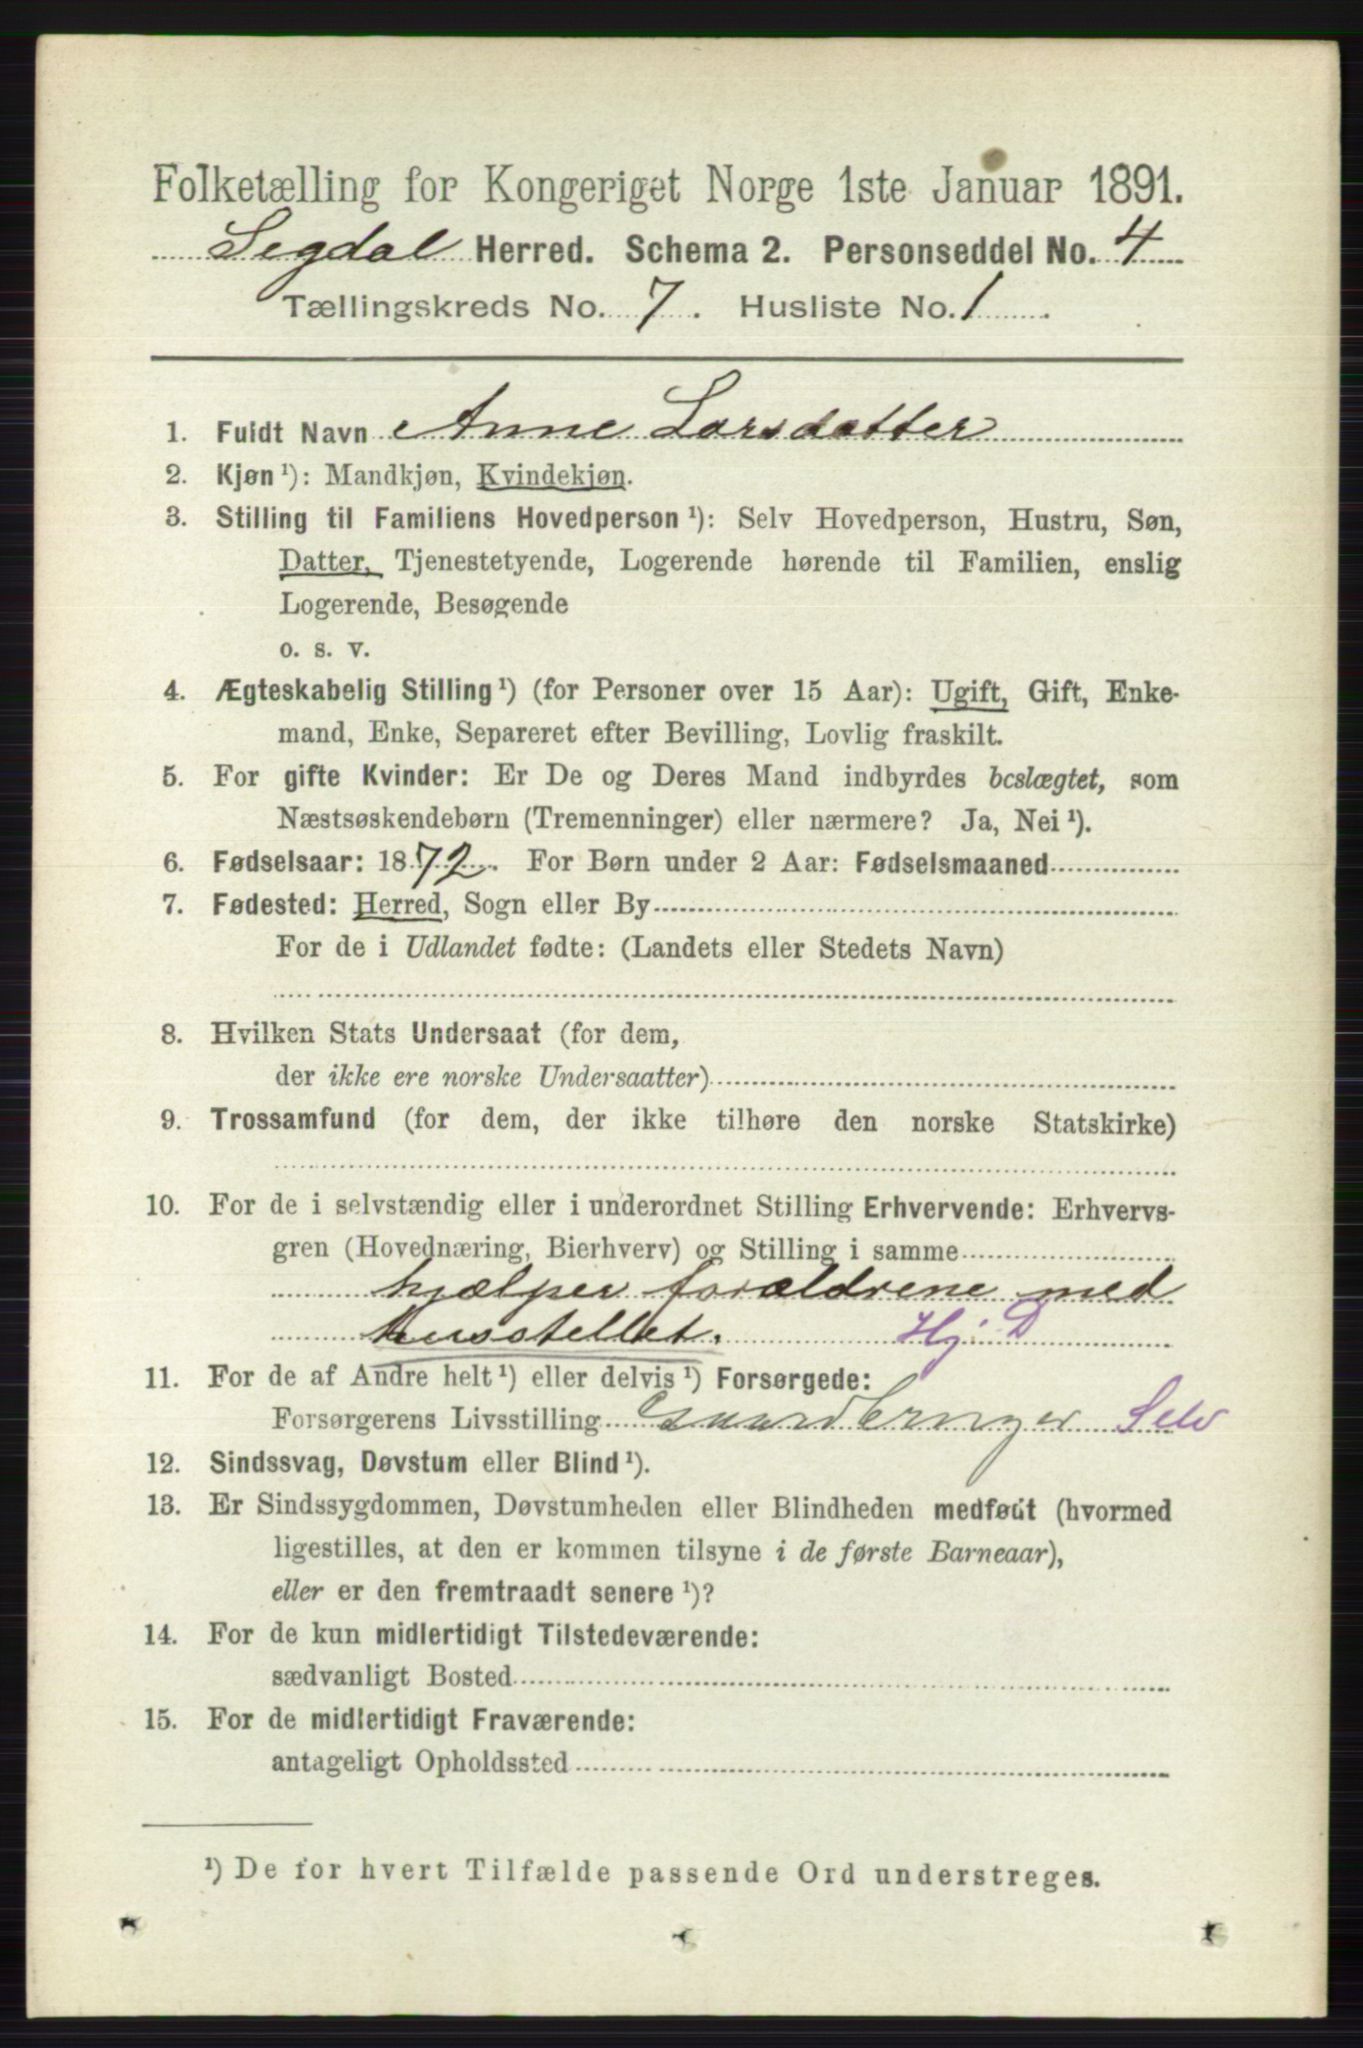 Folketælling for Kongeriget Norge 1ste Januar 1891.
Segdal Herred. Schema 2. Personseddel No. 4
Tællingskreds No. 7. Husliste No. 1.
1. Fuldt Navn Anne Larsdatter
2. Kjøn ¹): Mandkjøn, Kvindekjøn.
3. Stilling til Familiens Hovedperson ¹): Selv Hovedperson, Hustru, Søn,
Datter, Tjenestetyende, Logerende hørende til Familien, enslig
Logerende, Besøgende
o. s. v.
4. Ægteskabelig Stilling ¹) (for Personer over 15 Aar): Ugift, Gift, Enke-
mand, Enke, Separeret efter Bevilling, Lovlig fraskilt.
5. For gifte Kvinder: Er De og Deres Mand indbyrdes beslægtet, som
Næstsøskendebørn (Tremenninger) eller nærmere? Ja, Nei ¹).
6. Fødselsaar: 1872. For Børn under 2 Aar: Fødselsmaaned
7. Fødested: Herred, Sogn eller By
For de i Udlandet fødte: (Landets eller Stedets Navn)
8. Hvilken Stats Undersaat (for dem,
der ikke ere norske Undersaatter)
9. Trossamfund (for dem, der ikke tilhøre den norske Statskirke)
10. For de i selvstændig eller i underordnet Stilling Erhvervende: Erhvervs-
gren (Hovednæring, Bierhverv) og Stilling i samme
hjælper forældrene med
husstellet. Hj. D
11. For de af Andre helt ¹) eller delvis ¹) Forsørgede:
Forsørgerens Livsstilling Gaardbruger Selv
12. Sindssvag, Døvstum eller Blind ¹).
13. Er Sindssygdommen, Døvstumheden eller Blindheden medfødt (hvormed
ligestilles, at den er kommen tilsyne i de første Barneaar),
eller er den fremtraadt senere ¹)?
14. For de kun midlertidigt Tilstedeværende:
sædvanligt Bosted
15. For de midlertidigt Fraværende:
antageligt Opholdssted
¹) De for hvert Tilfælde passende Ord understreges.